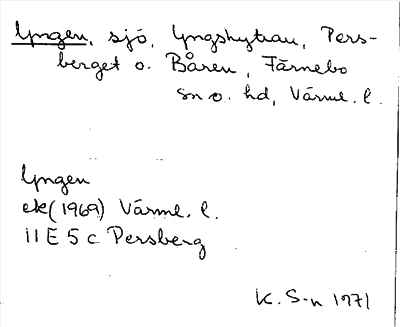 Yngen, sjö, Yngshyttan, Pers-
berget o. Båren, Färnebo
sn o. hd, Värml. l.
Yngen
ek (1969) Värml. l.
11 E 5 c Persberg
K. S-n 1971